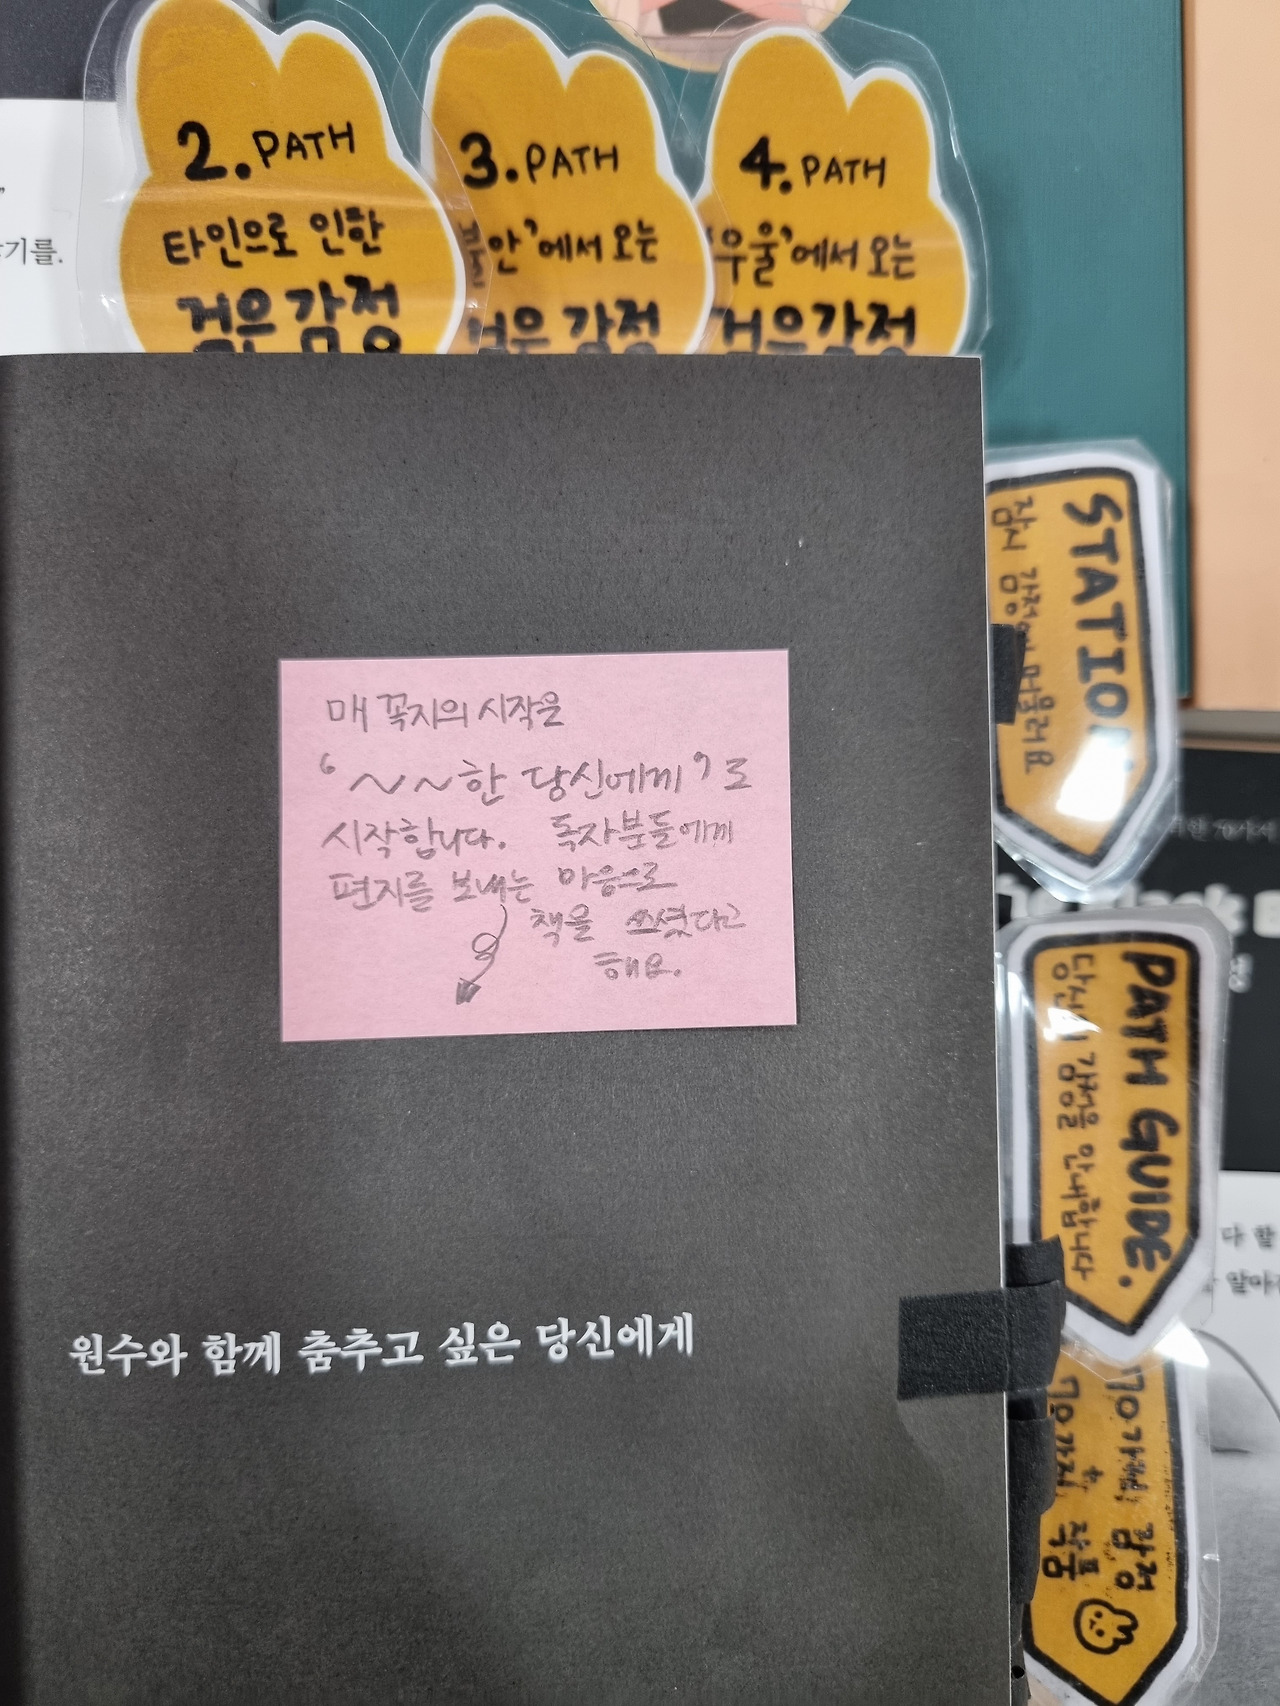 2. PATH
타인으로 인한
검은 감정
3. PATH
안'에서 오는
검은 감정
4. PATH
'우울'에서 오는
검은 감정
기를.
매 꼭지의 시작은
'~~한 당신에게'로
시작합니다. 독자분들에게
편지를 보내는 마음으로
책을 쓰셨다고
해요.
원수와 함께 춤추고 싶은 당신에게
STATION
잠시 감정에 머물러요
PATH GUIDE.
당신의 감정을 안내합니다
70가지 감정
70가지 작품
70가지
다 할